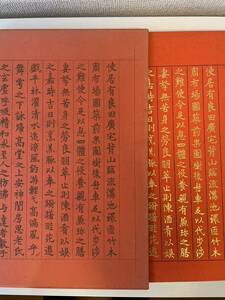 使居有良田廣宅背山臨流溝池環匝竹木
周布場圃築前果園樹後舟車足以代步涉
之難使令足以息四體之役養親有兼珍之膳
妻孥無苦身之勞良朋萃止則陳酒肴以娛
之嘉時吉日則烹羔豚以奉之躊躇畦苑遊
使居有良田廣宅背山臨流溝池環匝竹木
周布場圃築前果園樹後舟車足以代步涉
之難使令足以息四體之役養親有兼珍之膳
妻孥無苦身之勞良朋萃止則陳酒肴以娛
之嘉時吉日則烹羔豚以奉之躊躇畦苑遊
戲平林濯清水追涼風釣遊鯉弋高鴻風乎
舞雩之下詠歸高堂之上安神閨房思老氏
之玄虛呼吸精和求至人之彷彿與達者數子